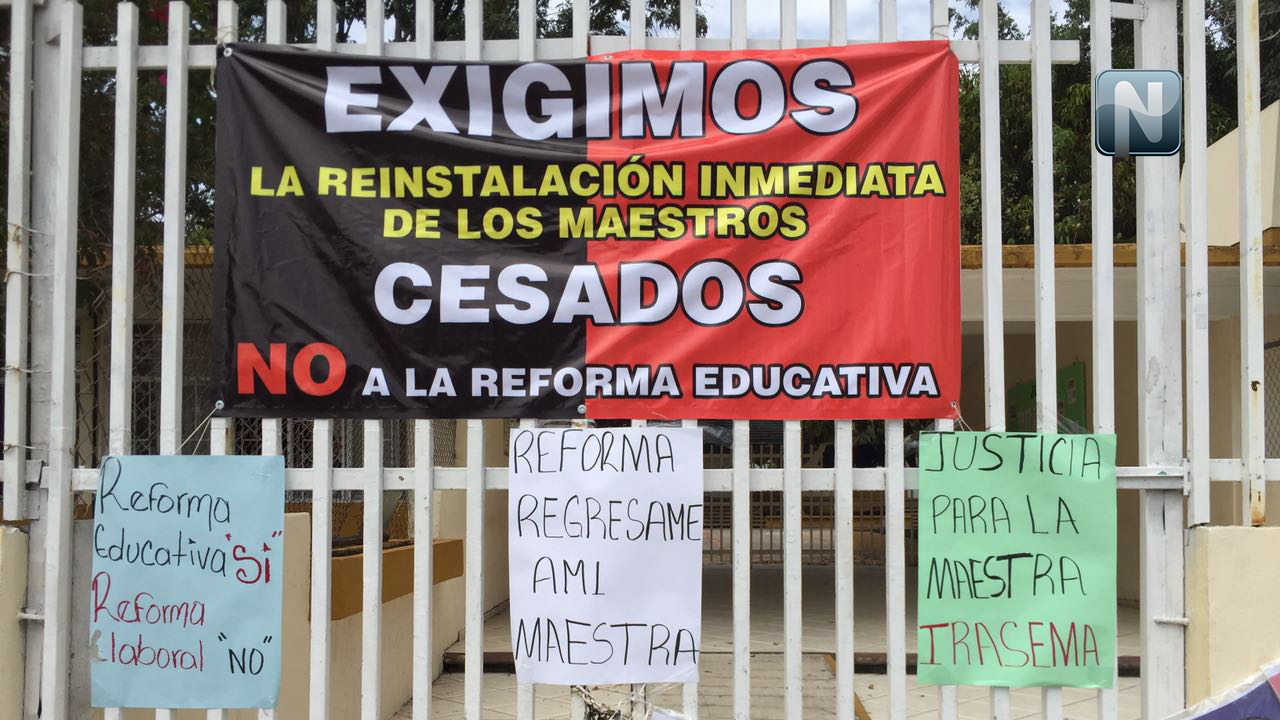 EXIGIMOS
LA REINSTALACIÓN INMEDIATA
DE LOS MAESTROS
CESADOS
NO A LA REFORMA EDUCATIVA
Reforma
Educativa "SI"
Reforma
laboral "NO"
REFORMA
REGRESAME
AMI
MAESTRA
JUSTICIA
PARA LA
MAESTRA
IRASEMA
N